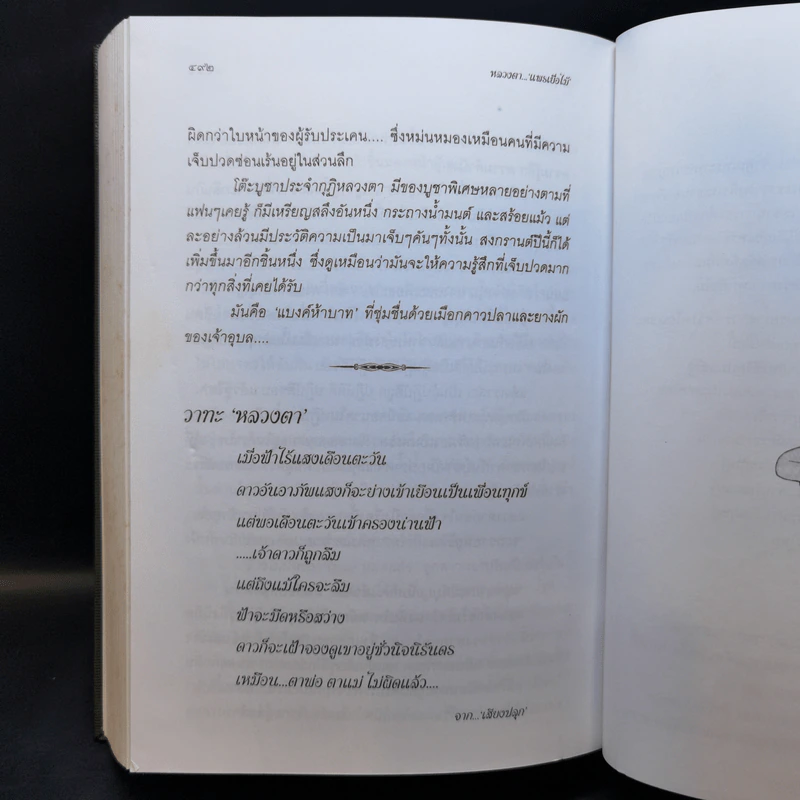 ๔๙๒
หลวงตา...'แพรเยื่อไม้'
ผิดกว่าใบหน้าของผู้รับประเคน.... ซึ่งหม่นหมองเหมือนคนที่มีความ
เจ็บปวดซ่อนเร้นอยู่ในส่วนลึก
โต๊ะบูชาประจำกุฏิหลวงตา มีของบูชาพิเศษหลายอย่างตามที่
แฟนๆเคยรู้ ก็มีเหรียญสลึงอันหนึ่ง กระถางน้ำมนต์ และสร้อยแม้ว แต่
ละอย่างล้วนมีประวัติความเป็นมาเจ็บๆคันๆทั้งนั้น สงกรานต์ปีนี้ก็ได้
เพิ่มขึ้นมาอีกชิ้นหนึ่ง ซึ่งดูเหมือนว่ามันจะให้ความรู้สึกที่เจ็บปวดมาก
กว่าทุกสิ่งที่เคยได้รับ
มันคือ 'แบงค์ห้าบาท' ที่ชุ่มชื่นด้วยเมือกคาวปลาและยางผัก
ของเจ้าอุบล....
วาทะ 'หลวงตา'
เมื่อฟ้าไร้แสงเดือนตะวัน
ดาวอันอาภัพแสงก็จะย่างเข้าเยือนเป็นเพื่อนทุกข์
แต่พอเดือนตะวันเข้าครองน่านฟ้า
.....เจ้าดาวก็ถูกลืม
แต่ถึงแม้ใครจะลืม
ฟ้าจะมืดหรือสว่าง
ดาวก็จะเฝ้าจองดูเขาอยู่ชั่วนิจนิรันดร
เหมือน...ตาพ่อ ตาแม่ ไม่ผิดแล้ว....
จาก...'เสียงปลุก'